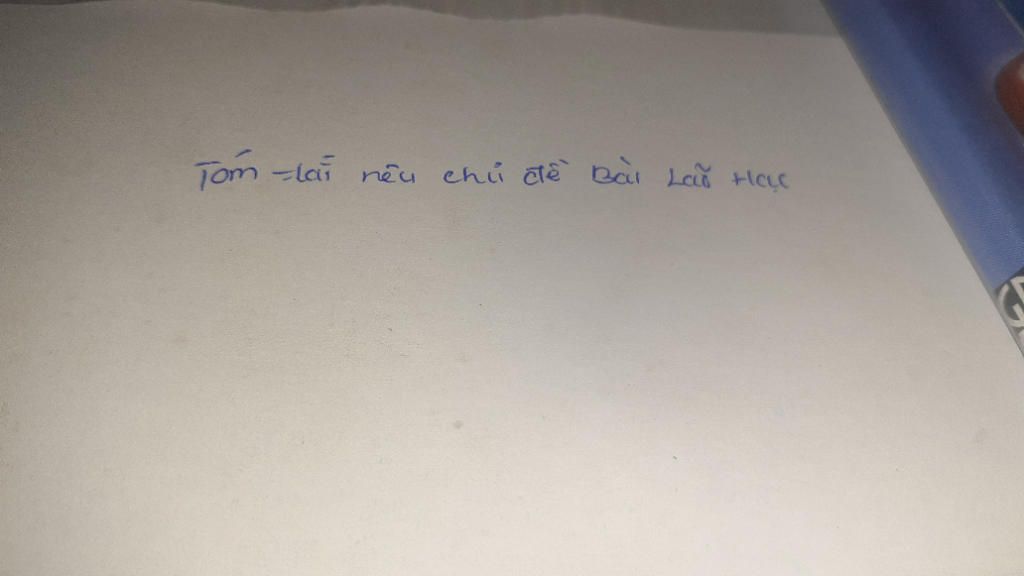 Tóm tắt nêu chủ đề Bài Lão Hạc